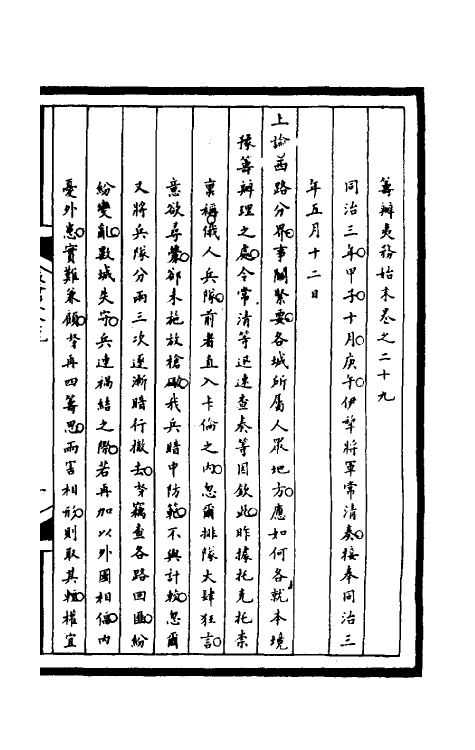 籌辦夷務始末卷之二十九
同治三年甲子十月庚午伊犂將軍常清奏接奉同治三
年五月十二日
上諭西路分界事關緊要各城所屬人眾地方應如何各就本境
豫籌辦理之處令常清等迅速查奏等因欽此昨據托克托柰
稟稱俄人兵隊前者直入卡倫之內忽爾排隊大肆狂言
意欲尋釁卻未施放槍礮我兵暗中防範不與計較忽爾
又將兵隊分兩三次逐漸暗行撤去芬竊查各路回匪紛
紛變亂數城失守兵連禍結之際若再加以外圖相偪內
憂外患實難兼顧芬再四籌思兩害相形則取其輕權宜